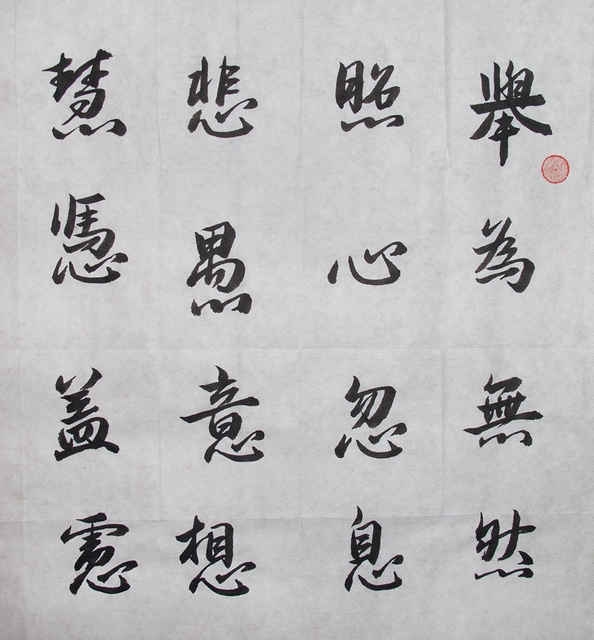 舉為無然
照心忽息
悲愚意想
慧憑盖慮